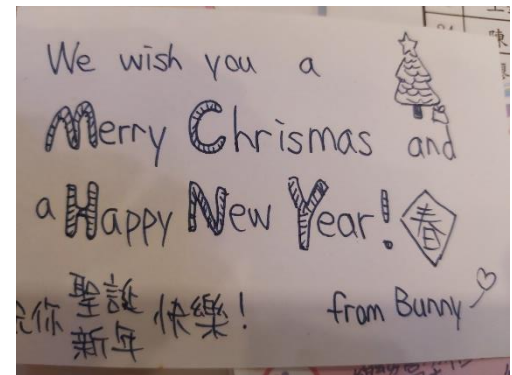 We wish you a
Merry Chrismas and
a Happy New Year!
春
你聖誕快樂!
新年
from Bunny